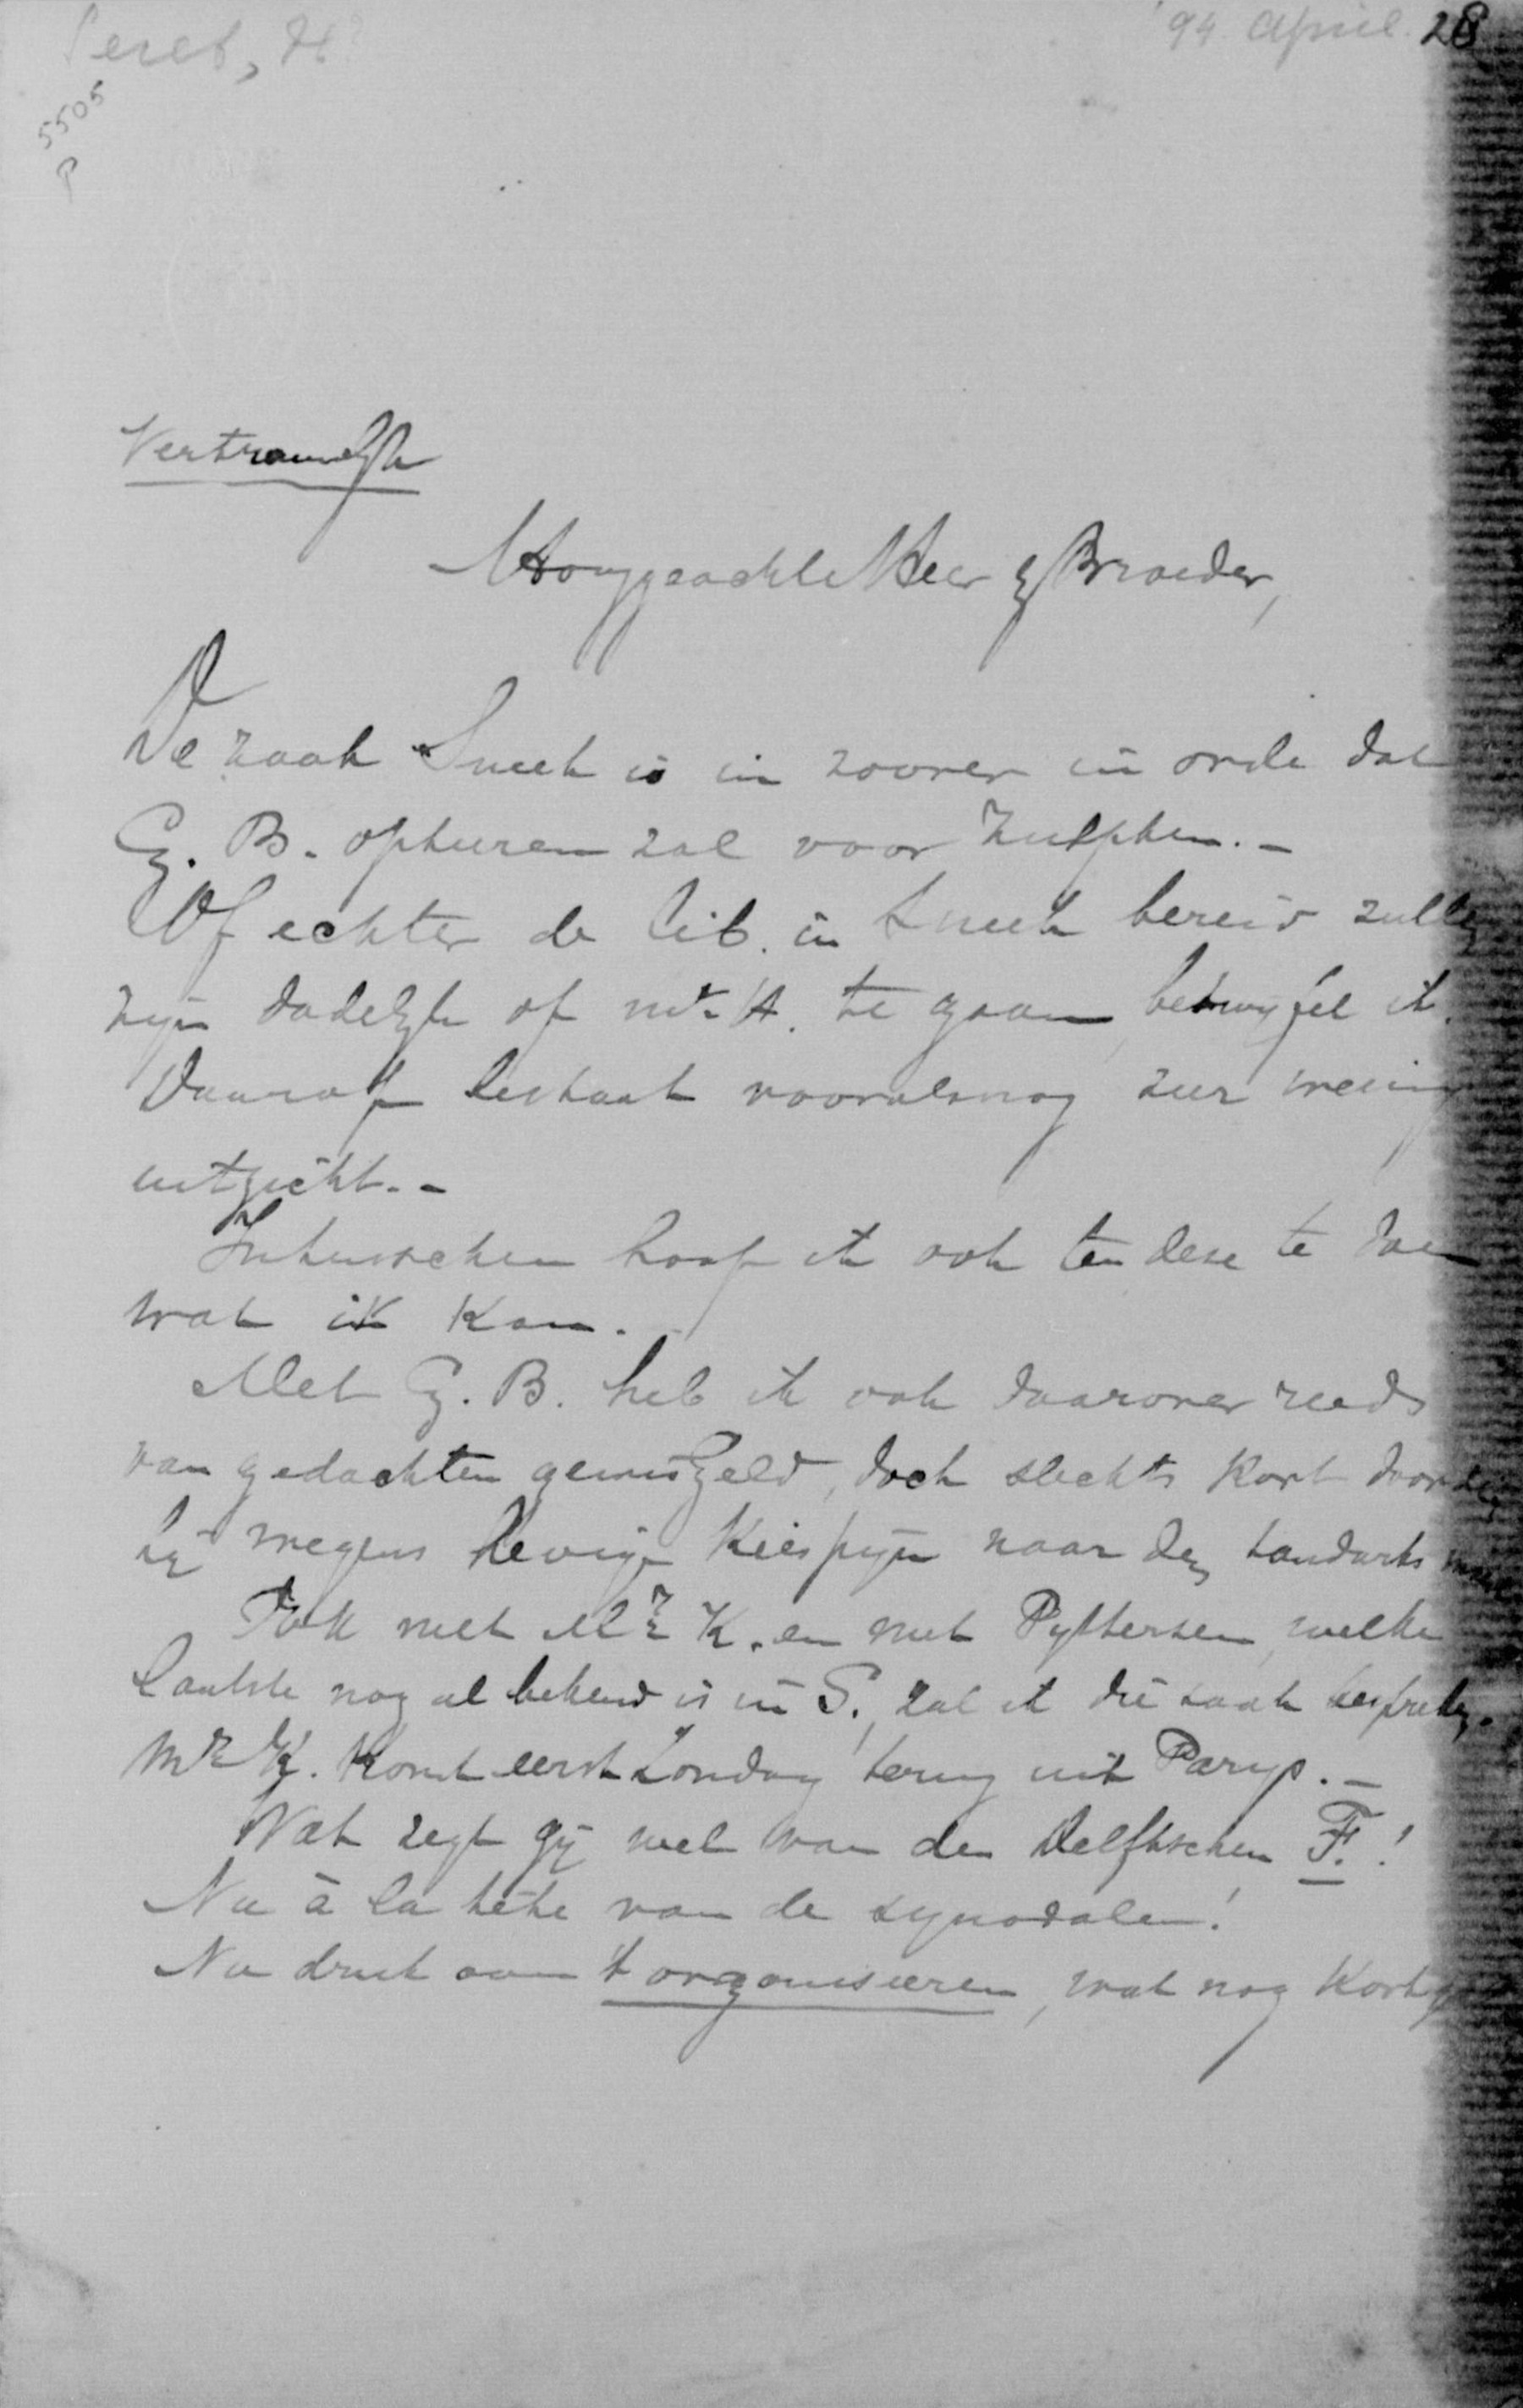 '94 April 28
5505
P
Vertrouwelijk
Hooggeachte Heer & Broeder,
De zaak Sneek is in zoover in orde dat
G. B. opteeren zal voor Zutphen. -
Of echter de lib. in Sneek bereid zullen
zijn dadelijk op mr. H. te gaan, betwijfel ik.
Daarop bestaat vooralsnog zeer weinig
uitzicht. -
Intusschen hoop ik ook ten deze te doen
wat ik kan.
Met G. B. heb ik ook daarover reeds
van gedachten gewisseld, doch slechts kort doordien
hij wegens hevige kiespijn naar den tandarts
Ook met Mr K. en met Pyttersen, welke
laatste nog al bekend is in S., zal ik die zaak bespreken.
Mr K. komt eerst Zondag terug uit Parijs. -
Wat zegt gij wel van den Delftschen F.!
Nu à la tête van de synodalen!
Nu druk aan 't organiseeren, wat nog kort